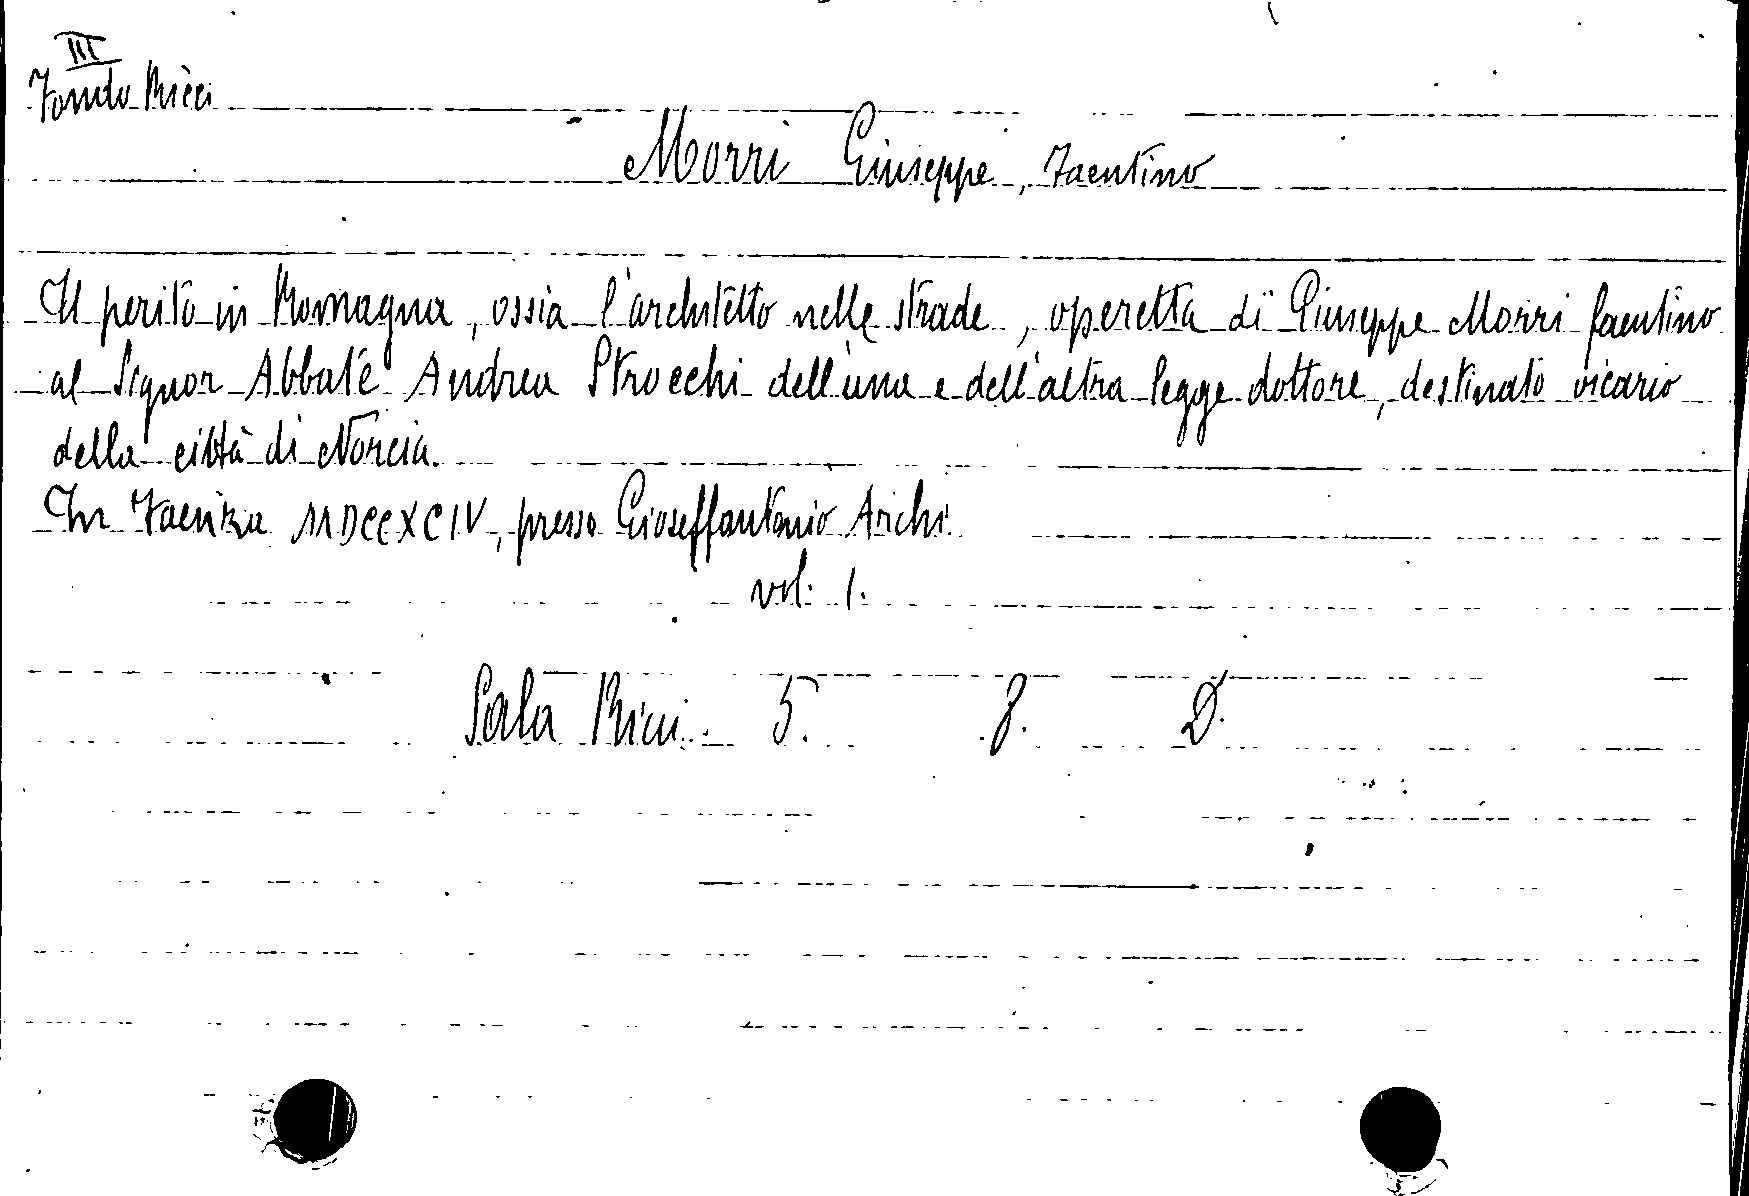 III
Fondo Ricci
Morri Giuseppe, Faentino
Il perito in Romagna, ossia l'architetto nelle strade, operetta di Giuseppe Morri faentino
al Signor Abbate Andrea Strocchi dell'una e dell'altra legge dottore, destinato vicario
della città di Norcia.
In Faenza MDCCXCIV, presso Gioseffantonio Archi.
vol. 1.
Sala Ricci. 5. 8. D.